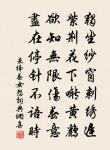 獨坐紗窗刺繡遲
紫荊花下囀黃鸝
欲知無限傷春意
盡在停針不語時
朱絳春女怨